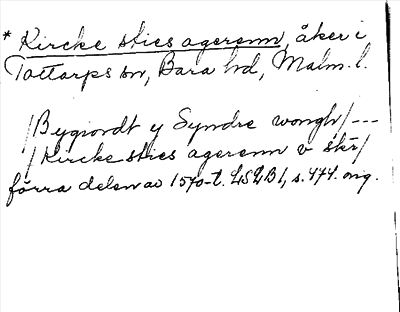 * Kircke sties agerenn, åker i
Tottarps sn, Bara hd, Malm. l.
/Bygiordt y Syndre wongh/ ---
/Kircke sties agerenn v skr/
förra delen av 1570-t. LSLB1, s. 474. orig.